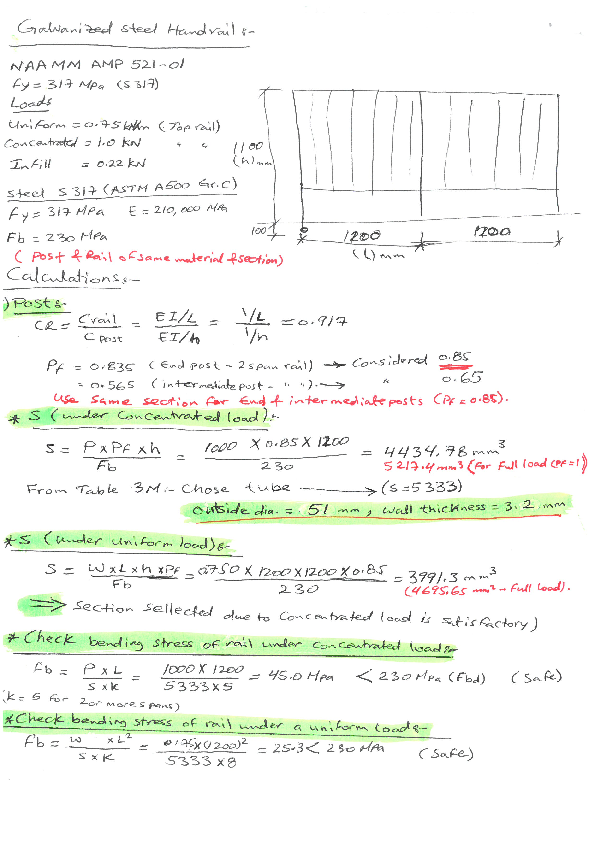 Galvanized steel Handrail:-
NAAMM AMP 521-01
Fy = 317 MPa (S317)
Loads
Uniform = 0.75 kN/m (Top rail)
Concentrated = 1.0 KN " "
Infill = 0.22 KN
1100
(h) mm
100
1200
1200
(L) mm
Steel S317 (ASTM A500 Gr.C)
Fy = 317 MPa E = 210,000 MPa
Fb = 230 MPa
( Post & Rail of same material & section)
Calculations:-
) Posts:-
CR = Crail / C post = EI/L / EI/h = 1/L / 1/h = 0.917
Pf = 0.835 (End post - 2 span rail) → Considered 0.85
= 0.565 (intermediate post - " ") → " 0.65
Use same section for End & intermediate posts (Pf = 0.85).
* S (under Concentrated load):-
S = P x Pf x h / Fb = 1000 X 0.85 X 1200 / 230 = 4434.78 mm³
5217.4 mm³ (for full load (PF=1))
From Table 3M:- Chose tube → (S=5333)
Outside dia. = 51 mm, wall thickness = 3.2 mm
* S (under Uniform load):-
S = W x L x h x Pf / Fb = 0.750 X 1200 X 1200 X 0.85 / 230 = 3991.3 mm³
(4695.65 mm² - Full load).
⇒ Section sellected due to Concentrated load is satisfactory)
* Check bending stress of rail under concentrated load:-
fb = P x L / S x K = 1000 X 1200 / 5333 X 5 = 45.0 MPa < 230 MPa (Fbd) (Safe)
(K = 5 for 2 or more spans)
* Check bending stress of rail under a uniform load:-
Fb = w x L² / S x K = 0.75 X (1200)² / 5333 X 8 = 25.3 < 230 MPa (Safe)